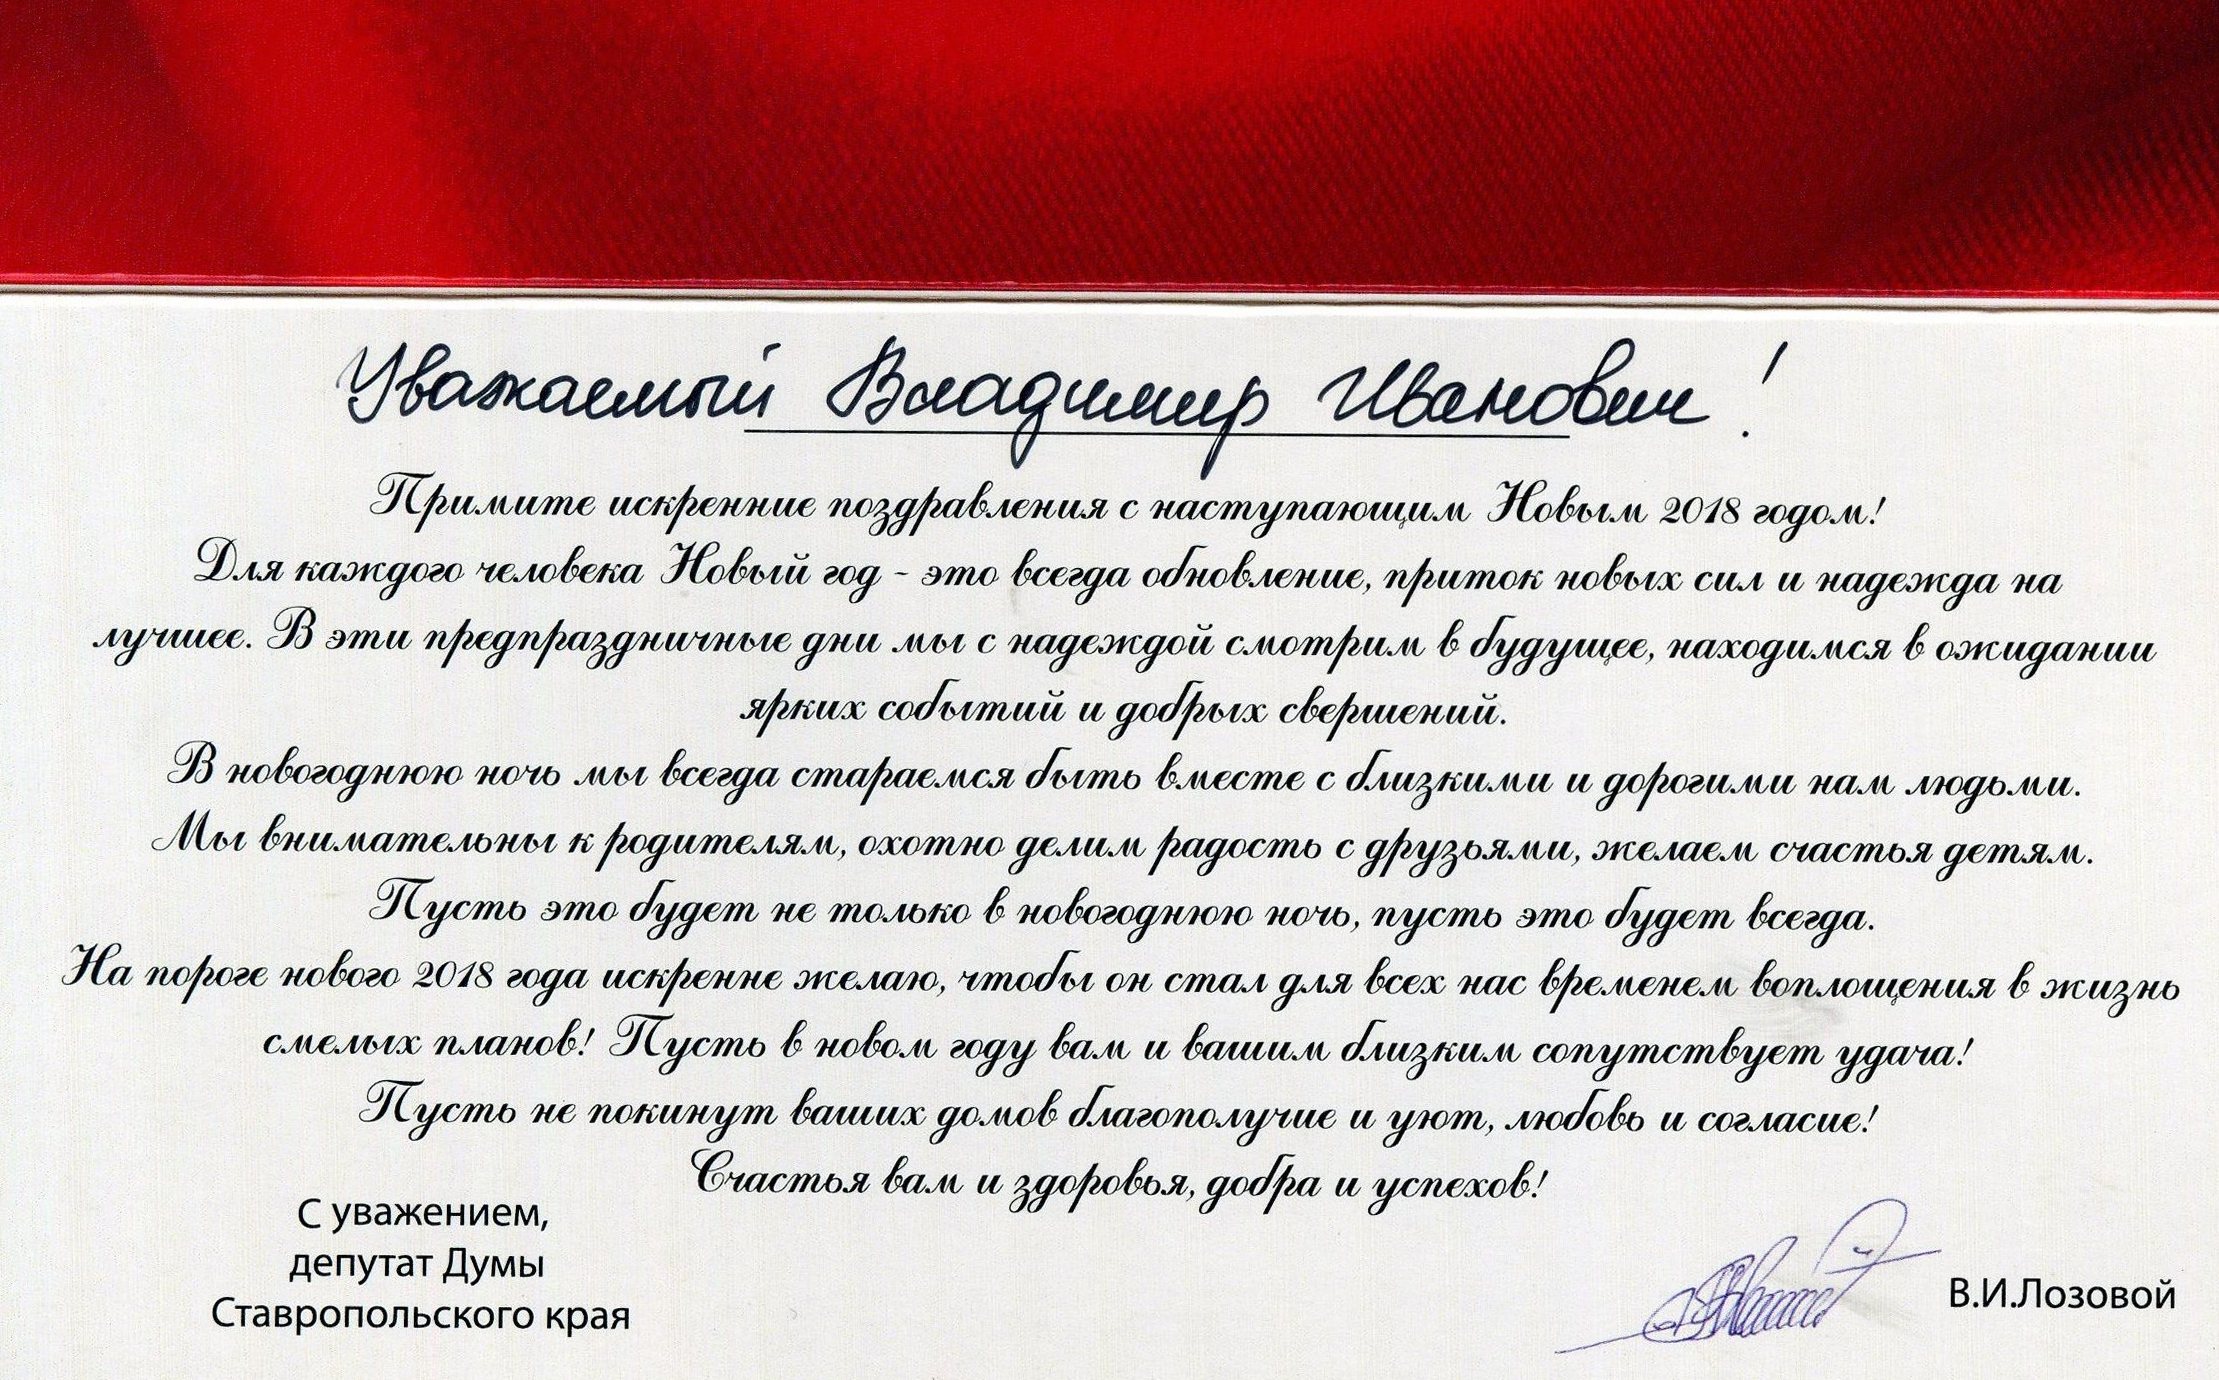 Уважаемый Владимир Иванович!
Примите искренние поздравления с наступающим Новым 2018 годом!
Для каждого человека Новый год - это всегда обновление, приток новых сил и надежда на
лучшее. В эти предпраздничные дни мы с надеждой смотрим в будущее, находимся в ожидании
ярких событий и добрых свершений.
В новогоднюю ночь мы всегда стараемся быть вместе с близкими и дорогими нам людьми.
Мы внимательны к родителям, охотно делим радость с друзьями, желаем счастья детям.
Пусть это будет не только в новогоднюю ночь, пусть это будет всегда.
На пороге нового 2018 года искренне желаю, чтобы он стал для всех нас временем воплощения в жизнь
смелых планов! Пусть в новом году вам и вашим близким сопутствует удача!
Пусть не покинут ваших домов благополучие и уют, любовь и согласие!
Счастья вам и здоровья, добра и успехов!
С уважением,
депутат Думы
Ставропольского края
В.И.Лозовой